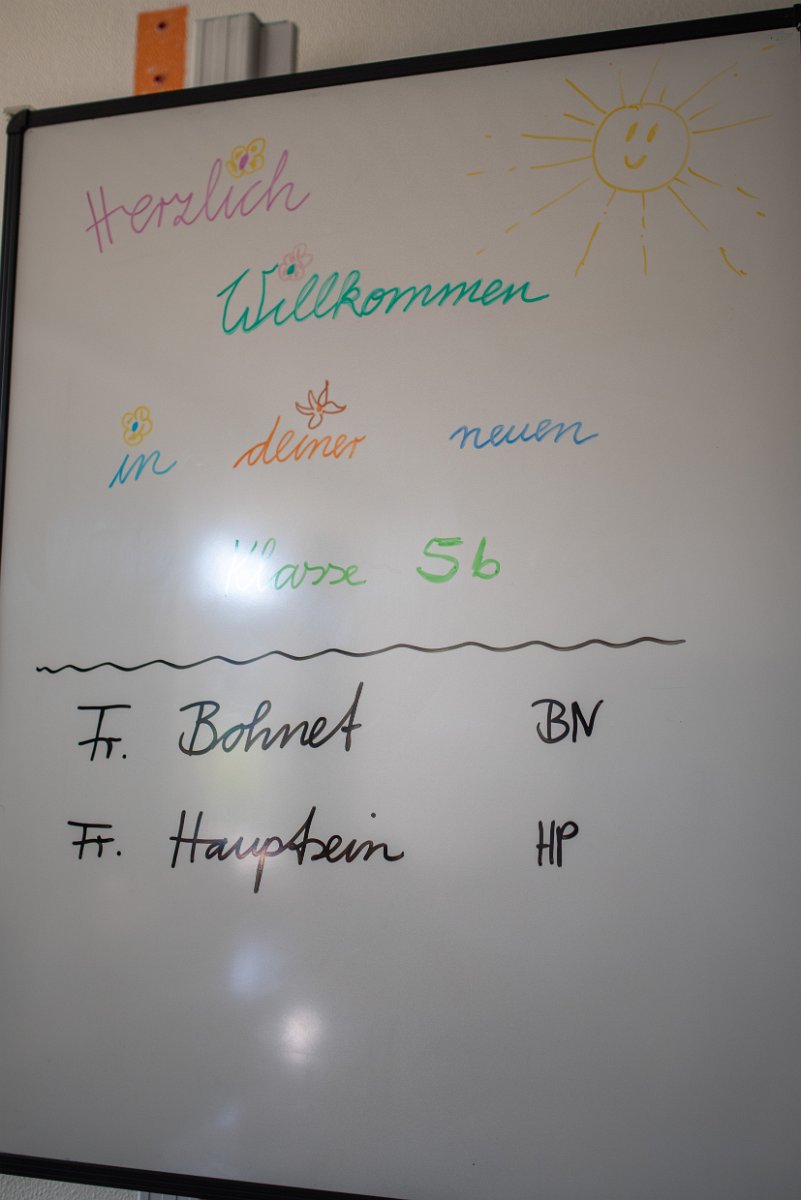 Herzlich
Willkommen
in deiner neuen
Klasse 5b
Fr. Bohnet BN
Fr. Hauptsein HP